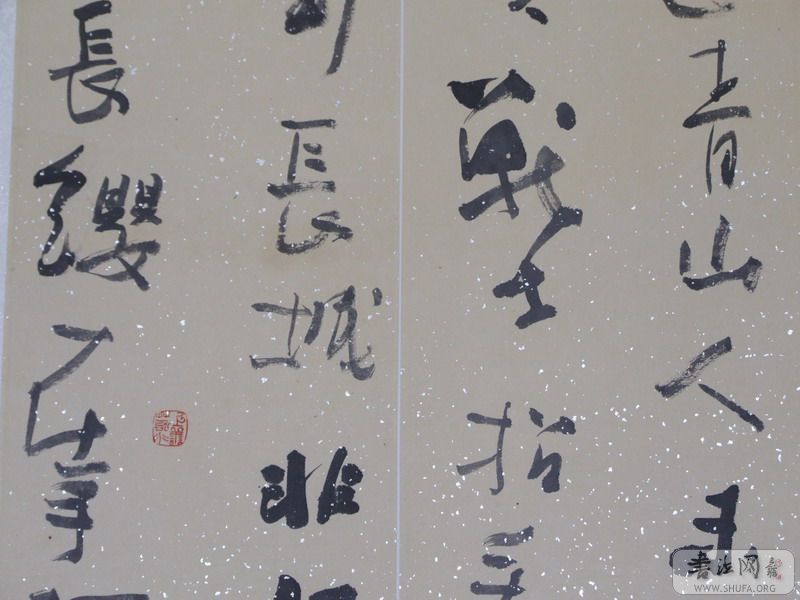 青山人未
戰士指
長城非
長纓在手
書法网
WWW.SHUFA.ORG